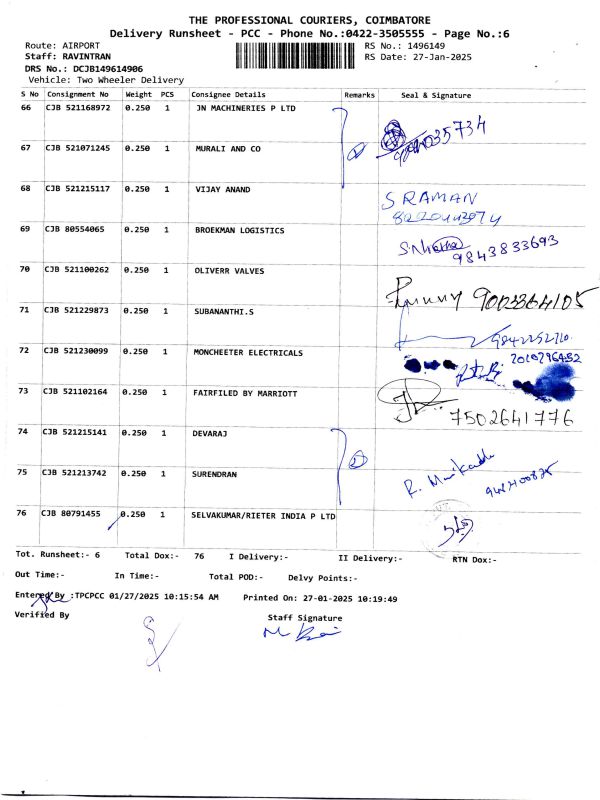 THE PROFESSIONAL COURIERS, COIMBATORE
Delivery Runsheet - PCC - Phone No.:0422-3505555 - Page No.:6
Route: AIRPORT RS No.: 1496149
Staff: RAVINTRAN RS Date: 27-Jan-2025
DRS No.: DCJB149614906
Vehicle: Two Wheeler Delivery
S No Consignment No Weight PCS Consignee Details Remarks Seal & Signature
66 CJB 521168972 0.250 1 JN MACHINERIES P LTD
67 CJB 521071245 0.250 1 MURALI AND CO
68 CJB 521215117 0.250 1 VIJAY ANAND S RAMAN
69 CJB 80554065 0.250 1 BROEKMAN LOGISTICS 9843833693
70 CJB 521100262 0.250 1 OLIVERR VALVES 9003364105
71 CJB 521229873 0.250 1 SUBANANTHI.S
72 CJB 521230099 0.250 1 MONCHEETER ELECTRICALS
73 CJB 521102164 0.250 1 FAIRFILED BY MARRIOTT 7502641776
74 CJB 521215141 0.250 1 DEVARAJ
75 CJB 521213742 0.250 1 SURENDRAN
76 CJB 80791455 0.250 1 SELVAKUMAR/RIETER INDIA P LTD
Tot. Runsheet:- 6 Total Dox:- 76 I Delivery:- II Delivery:- RTN Dox:-
Out Time:- In Time:- Total POD:- Delvy Points:-
Entered By :TPCPCC 01/27/2025 10:15:54 AM Printed On: 27-01-2025 10:19:49
Verified By Staff Signature